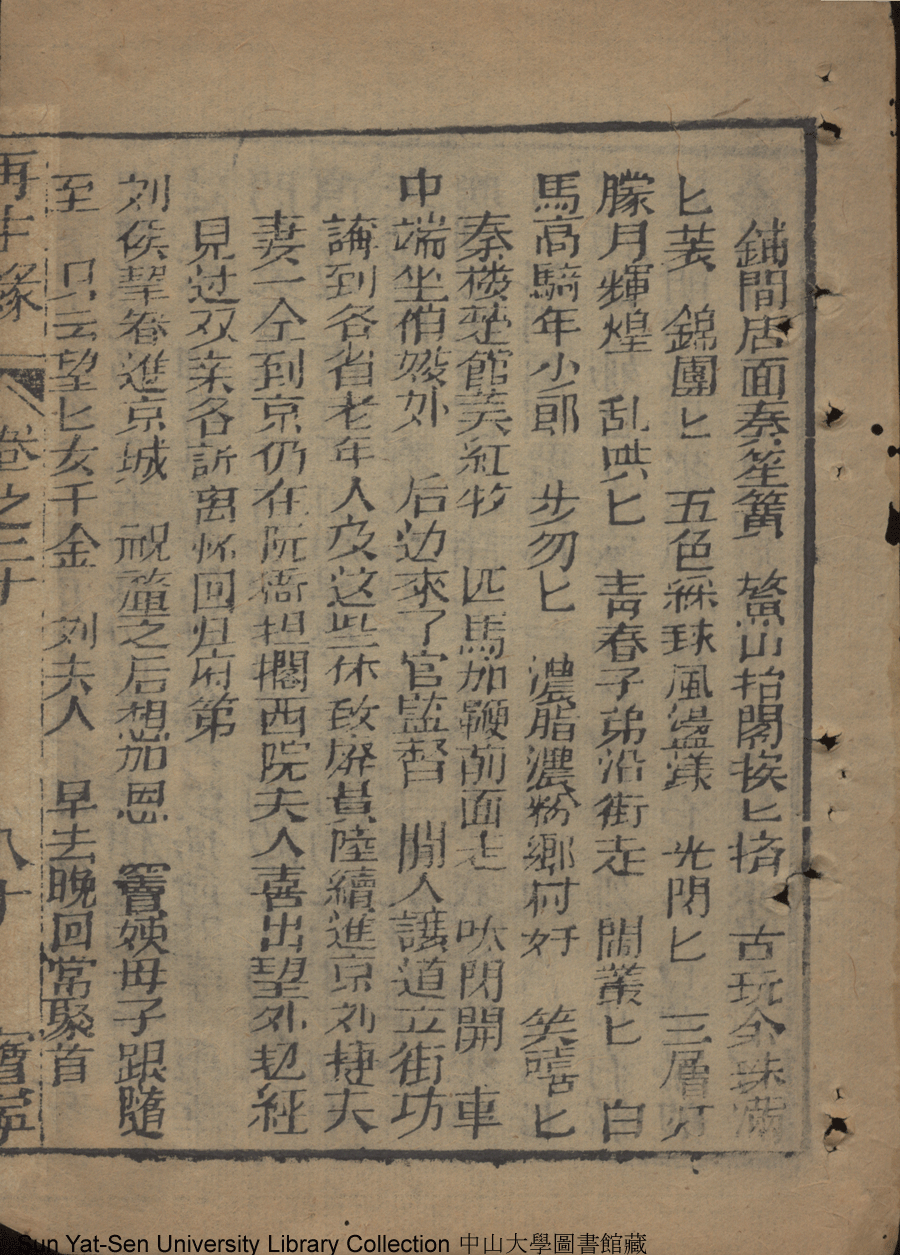 鋪間店面奏笙簧 鰲山抬閣挨匕擠 古玩金珠滿
匕裝 錦團匕 五色綵球風盪漾 光閃匕 三層灯
朦月輝煌 乱哄匕 青春子弟沿街走 鬧叢匕 白
馬高騎年少郎 步勿匕 濃脂濃粉鄉村好 笑嘻匕
秦楼楚館美紅妝 匹馬加鞭前面走 吹閃開 車
中端坐伯媝外 后边來了官監督 閒人讓道立街功
講到各省老年人及这些休致廢員陸續進京刘捷夫
妻一仝到京仍在阮衙担擱西院夫人喜出望外起經
見过双亲各訴离怀回归府第
刘侯挈眷進京城 祝釐之后想加恩 竇姨母子跟隨
至 只云望匕女千金 刘夫人 早去晚回常聚首
再生緣 卷之三十 八十 寶
Sun Yat-Sen University Library Collection 中山大學圖書館藏